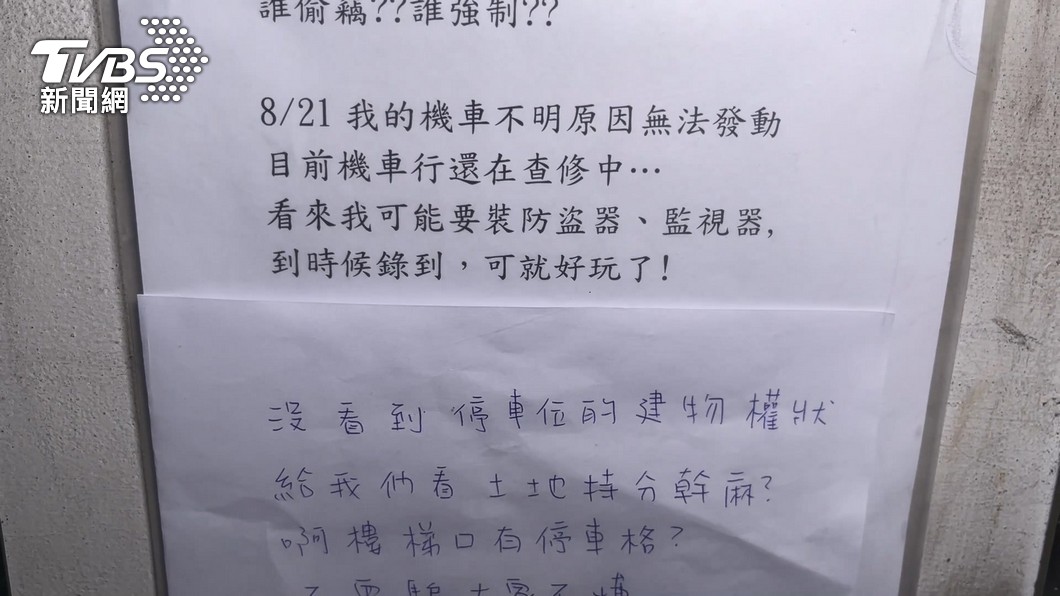 TVBS
新聞網
誰偷竊??誰強制??
8/21 我的機車不明原因無法發動
目前機車行還在查修中…
看來我可能要裝防盜器、監視器,
到時候錄到，可就好玩了!
沒看到停車位的建物權狀
給我們看土地持分幹麻?
啊樓梯口有停車格?